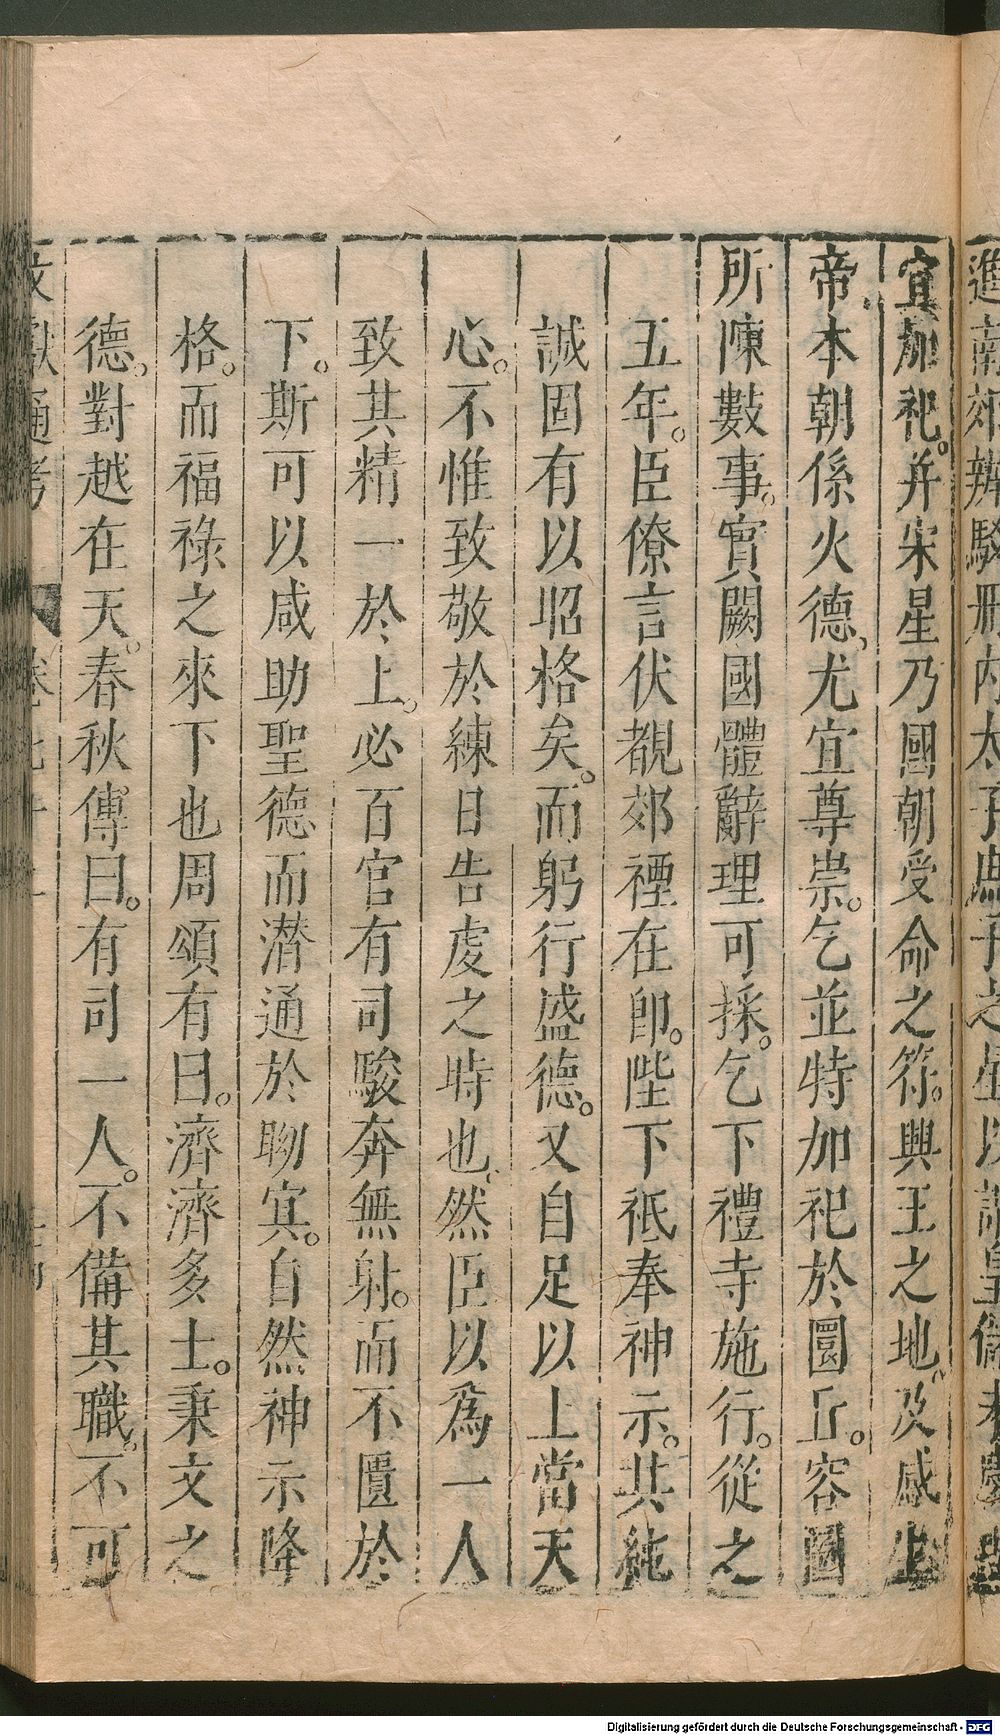 進南郊辨駁
宜加祀。并宋星乃國朝受命之符。興王之地。及感生
帝。本朝係火德。尤宜尊崇。乞並特加祀於圜丘。容圖
所陳數事。實闕國體辭理可採。乞下禮寺施行。從之
五年。臣僚言伏覩郊禋在卽。陛下祗奉神示。共純
誠固有以昭格矣。而躬行盛德。又自足以上當天
心。不惟致敬於練日告虔之時也。然臣以爲一人
致其精一於上。必百官有司駿奔無射。而不匱於
下。斯可以咸助聖德而潜通於昒㝠。自然神示降
格。而福祿之來下也周頌有曰。濟濟多士。秉文之
德。對越在天。春秋傳曰。有司一人。不備其職。不可
文獻通考
Digitalisierung gefördert durch die Deutsche Forschungsgemeinschaft - DFG